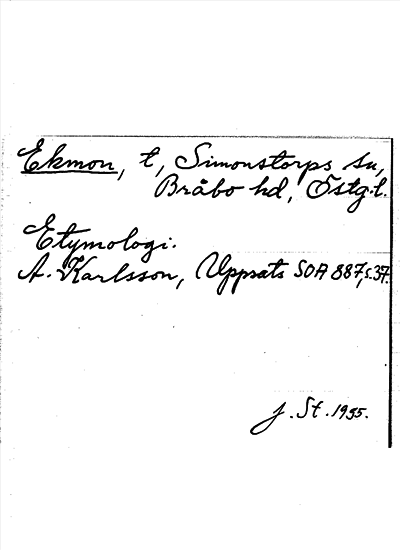 Ekmon, t, Simonstorps sn,
Bråbo hd, Östg.l.
Etymologi.
A. Karlsson, Uppsats SOA 887, s. 37.
J. St. 1935.